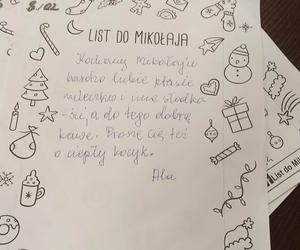 8./02
LIST DO MIKOŁAJA
Kochany Mikołaju
bardzo lubię ptasie
mleczko i inne słodko
-ści, a do tego dobrą
kawę. Proszę Cię też
o ciepły kocyk.
Ala
List do Mi